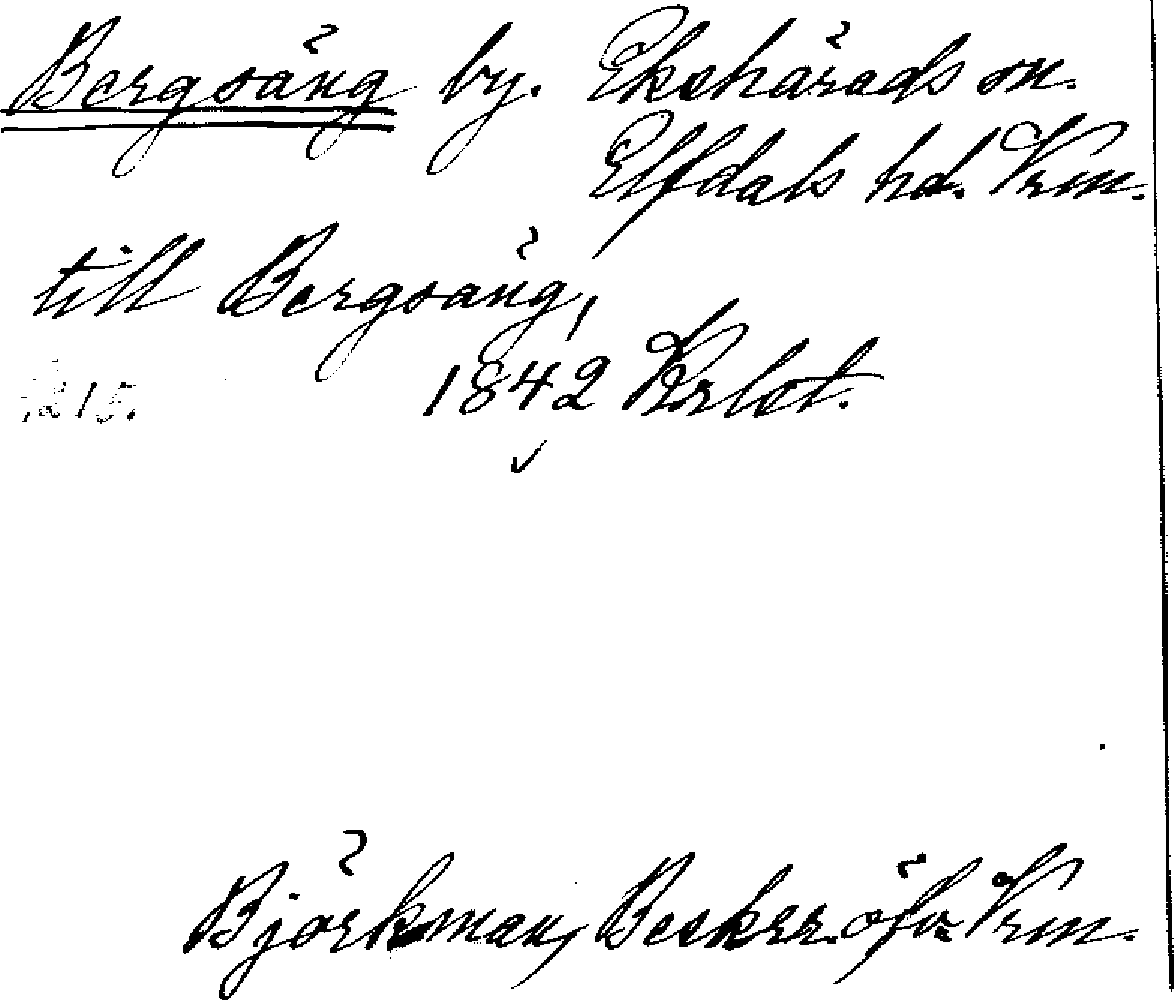 Bergsäng by. Ekshärads sn.
Elfdals hd. Vrm.
till Bergsäng,
1215. 1842 Krlbt.
Björkman, Beskr. öfv. Vrm.